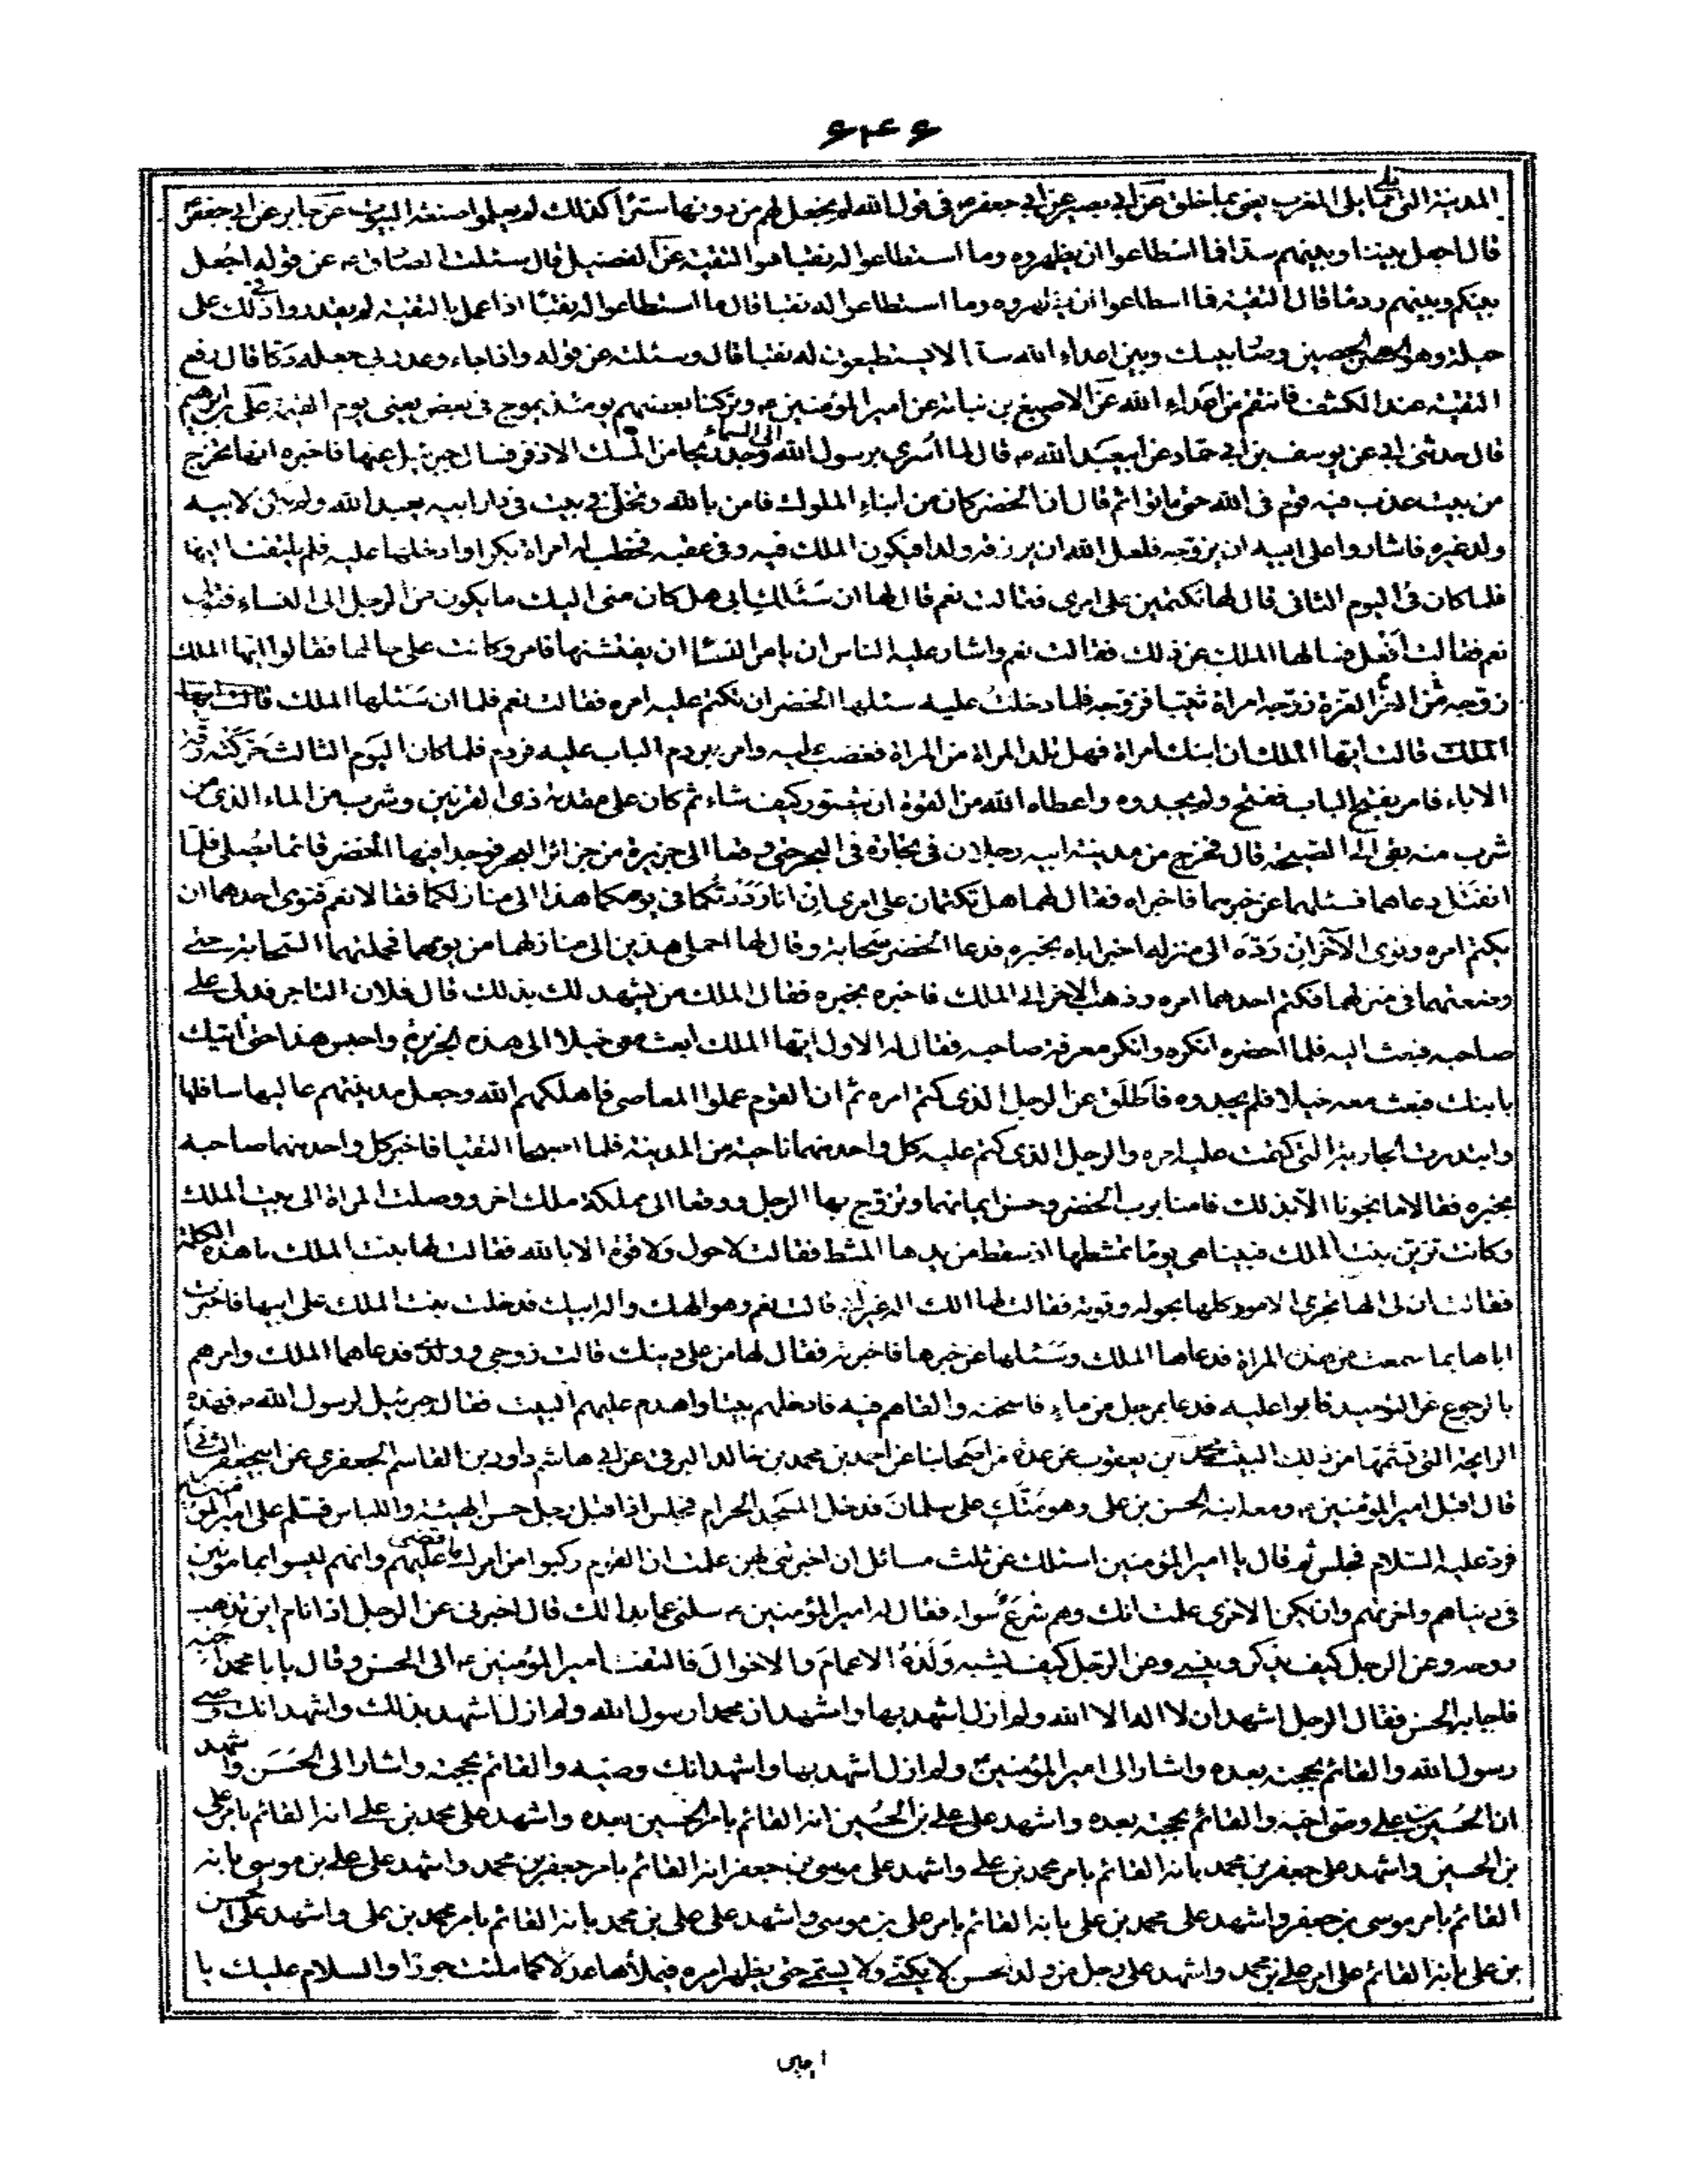 ۶۴۶
المدينة التي مما يلي المغرب يعني بما خلق عن ابي بصير عن ابي جعفر ع في قول الله لم نجعل لهم من دونها سترا كذلك لم يعلموا صنعة البيوت عن جابر عن ابي جعفر ع
قال اجعل بيننا وبينهم سدا فما اسطاعوا ان يظهروه وما استطاعوا له نقبا هو التقية عن المفضل قال سئلت الصادق ع عن قوله اجعل
بينكم وبينهم ردما قال التقية فما اسطاعوا ان يظهروه وما استطاعوا له نقبا قال ما استطاعوا له نقبا اذا عمل بالتقية لم يقدروا في ذلك على
حيلة وهو الحصن الحصين وصار بينك وبين اعداء الله سدا لا يستطيعون له نقبا قال وسئلته عن قوله واذا جاء وعد ربي جعله دكا قال رفع
التقية عند الكشف فانتقم من اعداء الله عن الاصبغ بن نباتة عن امير المؤمنين ع وتركنا بعضهم يومئذ يموج في بعض يعني يوم القيمة علي بن ابرهيم
قال حدثني ابي عن يوسف بن ابي حماد عن ابيعبد الله ع قال لما اسري برسول الله الى السماء وجد ريحا من المسك الاذفر فسال جبرئيل عنها فاخبره انها تخرج
من بيت عذب فيه قوم في الله حتى ماتوا ثم قال ان الخضر كان من ابناء الملوك فامن بالله وتخلى في بيت في دار ابيه يعبد الله ولم يكن لابيه
ولد غيره فاشاروا على ابيه ان يزوجه فلعل الله ان يرزقه ولدا فيكون الملك فيه وفي عقبه فخطب له امراة بكرا وادخلها عليه فلم يلتفت اليها
فلما كان في اليوم الثاني قال لها تكتمين علي امري فقالت نعم قال لها ان سئلك ابي هل كان مني اليك ما يكون من الرجل الى النساء فقولي
نعم فقالت افعل فسالها الملك عن ذلك فقالت نعم واشار عليه الناس ان يامر النساء ان يفتشنها فامر وكانت على حالها فقالوا ايها الملك
زوجت الغر من الغرة زوجه امراة ثيبا فزوجه فلما دخلت عليه سئلها الخضر ان تكتم عليه امره فقالت نعم فلما ان سئلها الملك قالت ايها
الملك قالت ايها الملك ان ابنك امراة فهل تلد المراة من المراة فغضب عليه وامر بردم الباب عليه فردم فلما كان اليوم الثالث حركته رقة
الاباء فامر بفتح الباب ففتح ولم يجدوه واعطاه الله من القوة ان يتصور كيف شاء ثم كان على مقدمة ذي القرنين وشرب من الماء الذي من
شرب منه بقى الى الصيحة قال فخرج من مدينة ابيه رجلان في تجارة في البحر حتى وقعا الى جزيرة من جزائر البحر فوجدا فيها الخضر قائما يصلي فلما
انفتل دعاهما فسئلهما عن خبرهما فاخبراه فقال لهما هل تكتمان علي امري ان انا رددتكما في يومكما هذا الى منازلكما فقالا نعم فنوى احدهما ان
يكتم امره ونوى الآخر ان رده الى منزله اخبر اباه بخبره فدعا الخضر سحابة وقال لها احملي هذين الى منازلهما من يومهما فحملتهما السحابة حتى
وضعتهما في منزلهما فكتم احدهما امره وذهب الاخر الى الملك فاخبره بخبره فقال الملك من يشهد لك بذلك قال فلان التاجر فدل على
صاحبه فبعث اليه فلما احضره انكره وانكر معرفة صاحبه فقال له الاول ايها الملك ابعث معي خيلا الى هذه الجزيرة واحبس هذا حتى آتيك
بابنك فبعث معه خيلا فلم يجدوه فاطلق عن الرجل الذي كتم امره ثم ان القوم عملوا المعاصي فاهلكهم الله وجعل مدينتهم عاليها سافلها
وابتدرت الجارية التي كتمت عليه امره والرجل الذي كتم عليه كل واحد منهما ناحية من المدينة فلما اصبحا التقيا فاخبر كل واحد منهما صاحبه
بخبره فقالا ما نجونا الا بذلك فامنا برب الخضر وحسن ايمانهما وتزوج بها الرجل ووقعا الى مملكة ملك اخر ووصلت المراة الى بيت الملك
وكانت تزين بنت الملك فبينا هي يوما تمشطها اذ سقط من يدها المشط فقالت لا حول ولا قوة الا بالله فقالت لها بنت الملك ما هذه الكلمة
فقالت ان لي الها تجري الامور كلها بحوله وقوته فقالت لها الك اله غير ابي قالت نعم وهو الهك واله ابيك فدخلت بنت الملك على ابيها فاخبرت
اباها بما سمعت من هذه المراة فدعاها الملك وسئلها عن خبرها فاخبرته فقال لها من على دينك قالت زوجي وولدي فدعاهما الملك وامرهم
بالرجوع عن التوحيد فابوا عليه فدعا بمرجل من ماء فاسخنه والقاهم فيه فادخلهم بيتا واهدم عليهم البيت فقال جبرئيل لرسول الله ص فهذه
الرايحة التي تشمها من ذلك البيت محمد بن يعقوب عن عدة من اصحابنا عن احمد بن محمد بن خالد البرقي عن ابي هاشم داود بن القاسم الجعفري عن ابيجعفر الثاني ع
قال اقبل امير المؤمنين ع ومعه ابنه الحسن بن علي وهو متك على سلمان فدخل المسجد الحرام فجلس اذا اقبل رجل حسن الهيئة واللباس فسلم على امير المؤمنين
فرد عليه السلام فجلس ثم قال يا امير المؤمنين اسئلك عن ثلث مسائل ان اخبرتني بهن علمت ان القوم ركبوا من امرك ما قضي عليهم وانهم ليسوا بمامونين
في دنياهم واخرتهم وان تكن الاخرى علمت انك وهم شرع سواء فقال له امير المؤمنين ع سلني عما بدا لك قال اخبرني عن الرجل اذا نام اين تذهب
روحه وعن الرجل كيف يذكر وينسى وعن الرجل كيف يشبه ولده الاعمام والاخوال فالتفت امير المؤمنين ع الى الحسن وقال يا با محمد اجبه
فاجابه الحسن فقال الرجل اشهد ان لا اله الا الله ولم ازل اشهد بها واشهد ان محمدا رسول الله ولم ازل اشهد بذلك واشهد انك وصي
رسول الله والقائم بحجته بعده واشار الى امير المؤمنين ولم ازل اشهد بها واشهد انك وصيه والقائم بحجته واشار الى الحسن واشهد
ان الحسين بن علي وصي اخيه والقائم بحجته بعده واشهد على علي بن الحسين انه القائم بامر الحسين بعده واشهد على محمد بن علي انه القائم بامر علي
بن الحسين واشهد على جعفر بن محمد بانه القائم بامر محمد بن علي واشهد على موسى بن جعفر انه القائم بامر جعفر بن محمد واشهد على علي بن موسى بانه
القائم بامر موسى بن جعفر واشهد على محمد بن علي بانه القائم بامر علي بن موسى واشهد على علي بن محمد بانه القائم بامر محمد بن علي واشهد على الحسن
بن علي بانه القائم على امر علي بن محمد واشهد على رجل من ولد الحسن لا يكنى ولا يسمى حتى يظهر امره فيملأها عدلا كما ملئت جورا والسلام عليك يا
امير